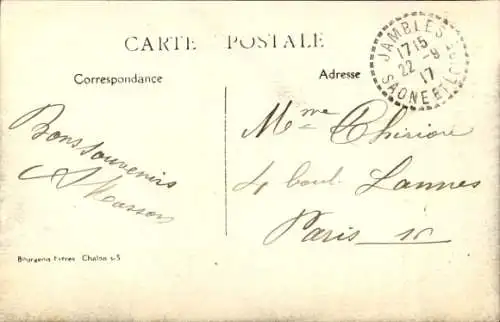 CARTE POSTALE
Correspondance
Adresse
JAMBLES
1715
22 - 9
17
SAONE ET LOIRE
Bons souvenirs
Masson
Mme Thirion
4 boul. Lannes
Paris
Bourgeois Frères Chalon s-S